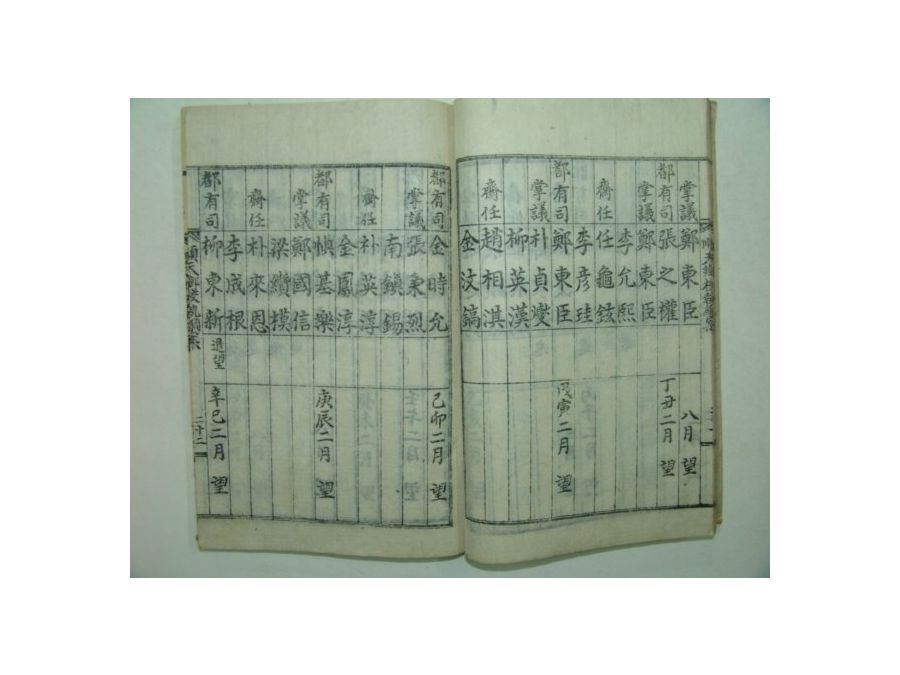 掌議 鄭東臣 八月 望
都有司 張之權 丁丑二月 望
掌議 鄭東臣
李允熙
齋任 任龜鉉
李彦珪
都有司 鄭東臣 戊寅二月 望
掌議 朴貞燮
柳英漢
齋任 趙相淇
金汶鎬
都有司 金時允 己卯二月 望
掌議 張秉烈
南鎭錫
齋任 朴英淳
金鳳淳
都有司 愼基樂 庚辰二月 望
掌議 鄭國信
梁纘模
齋任 朴來恩
李成根
都有司 柳東新 退望 辛巳二月 望
順天鄕校 案 二十二